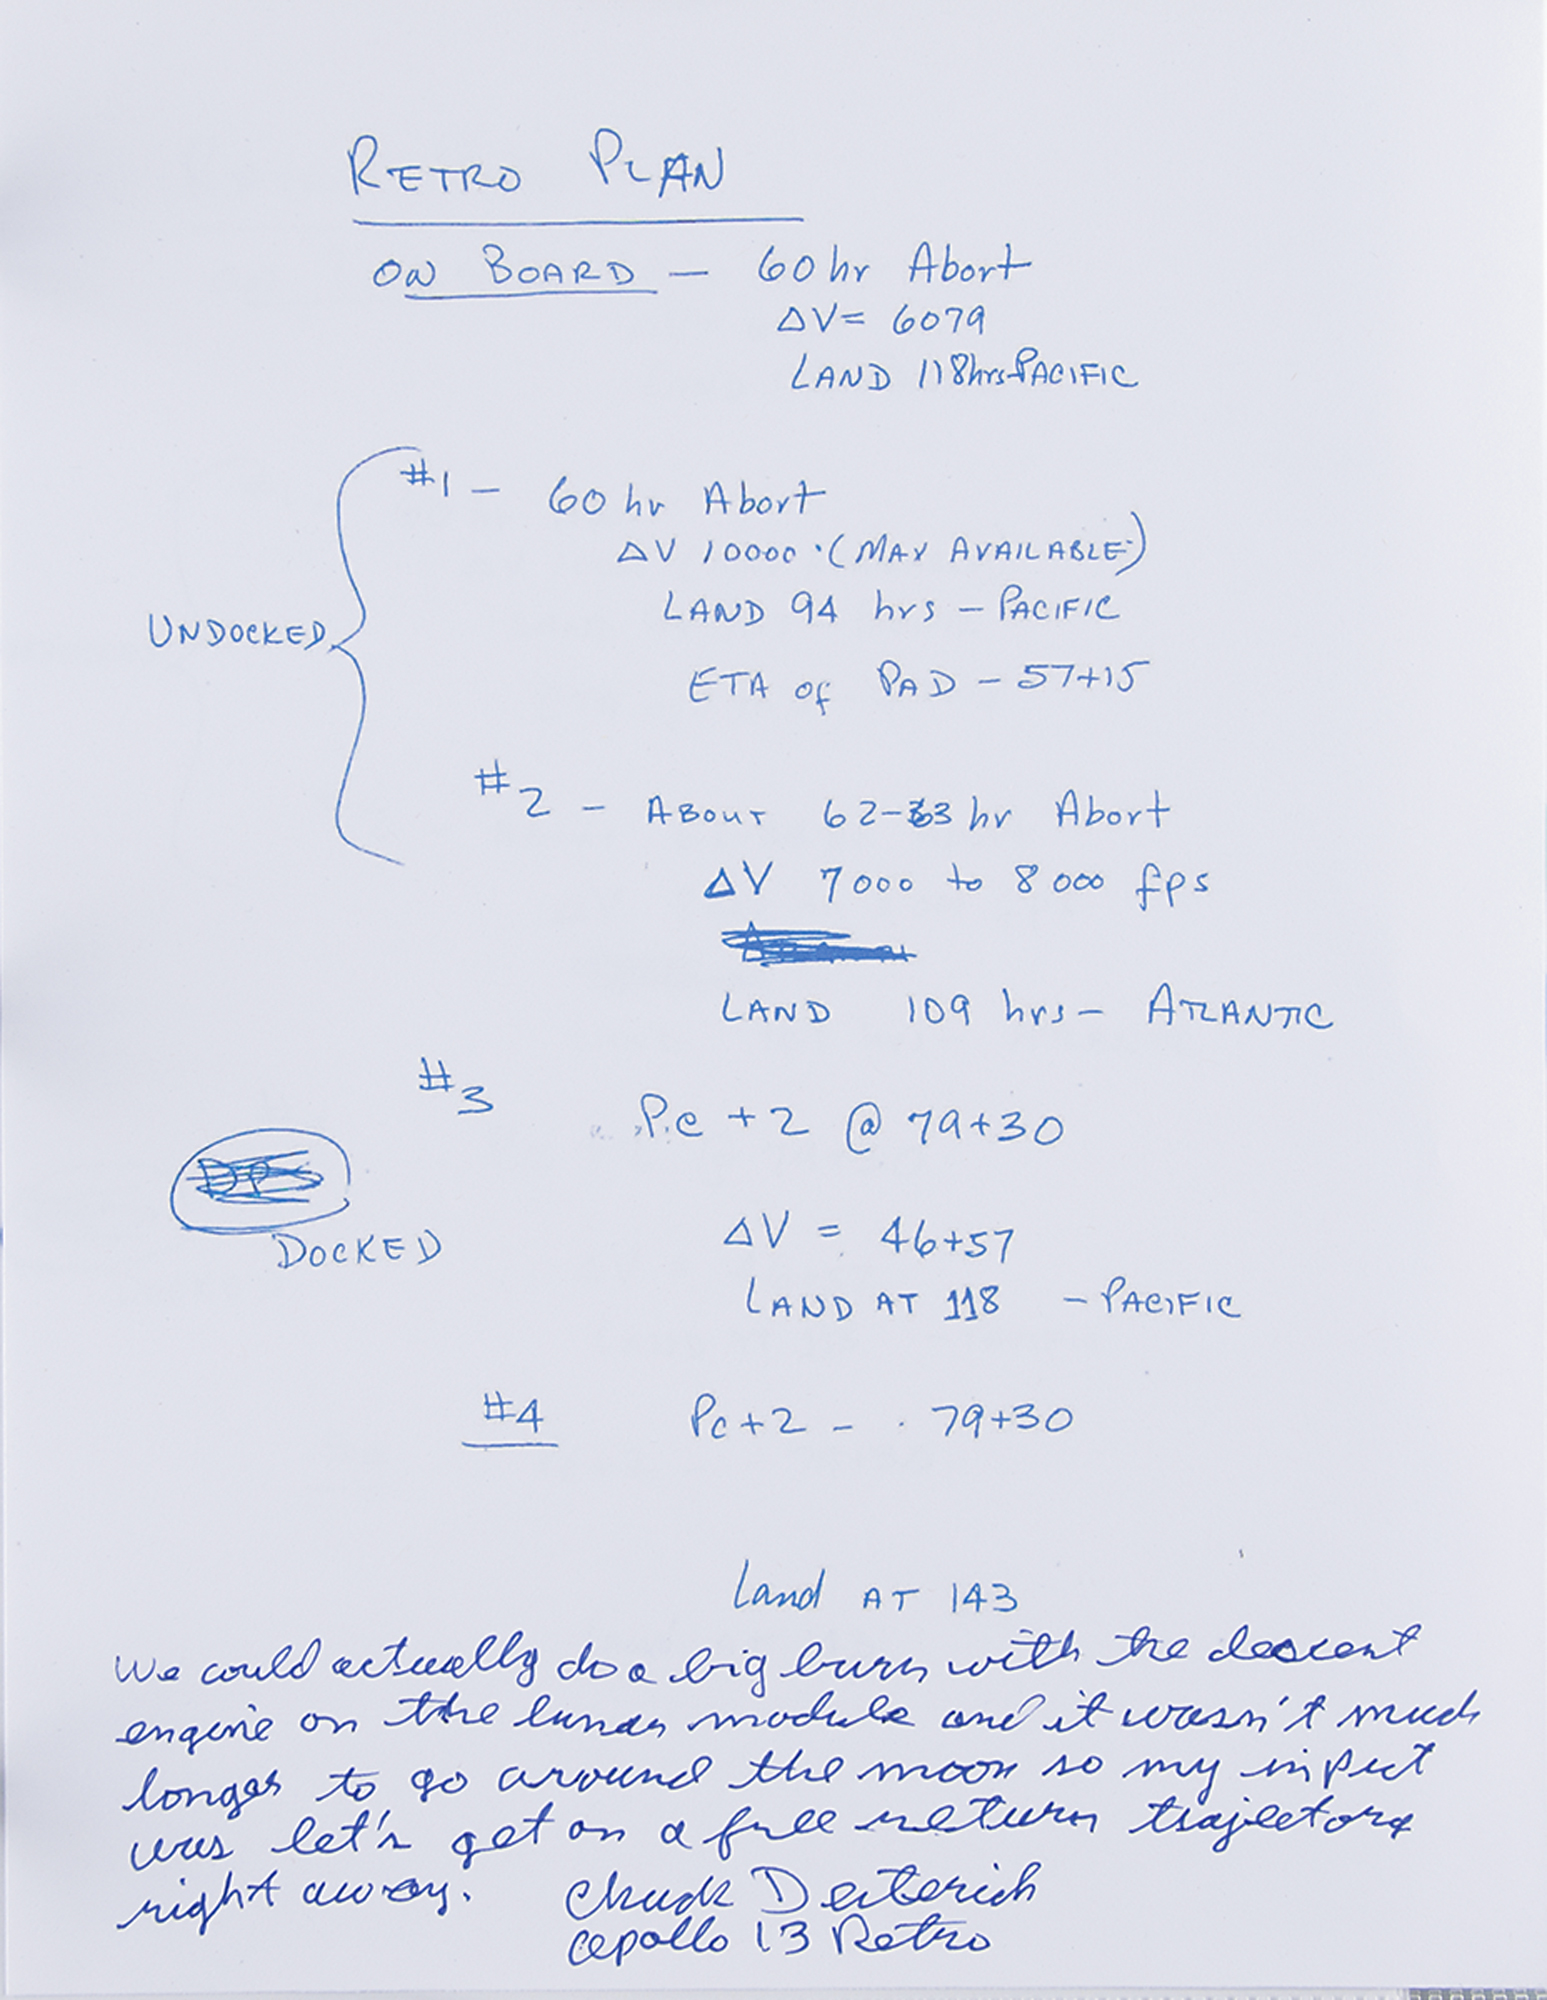 RETRO PLAN
ON BOARD — 60 hr Abort
ΔV= 6079
LAND 118hrs-PACIFIC
#1 — 60 hr Abort
ΔV 10000 (MAX AVAILABLE)
LAND 94 hrs — PACIFIC
UNDOCKED
ETA of PAD — 57+15
#2 — ABOUT 62-63 hr Abort
ΔV 7000 to 8000 fps
LAND 109 hrs — ATLANTIC
#3 Pc + 2 @ 79+30
DPS
DOCKED
ΔV = 46+57
LAND AT 118 — PACIFIC
#4 Pc+2 — 79+30
Land AT 143
We could actually do a big burn with the descent
engine on the lunar module and it wasn't much
longer to go around the moon so my input
was let's get on a free return trajectory
right away. Chuck Deiterich
Apollo 13 Retro